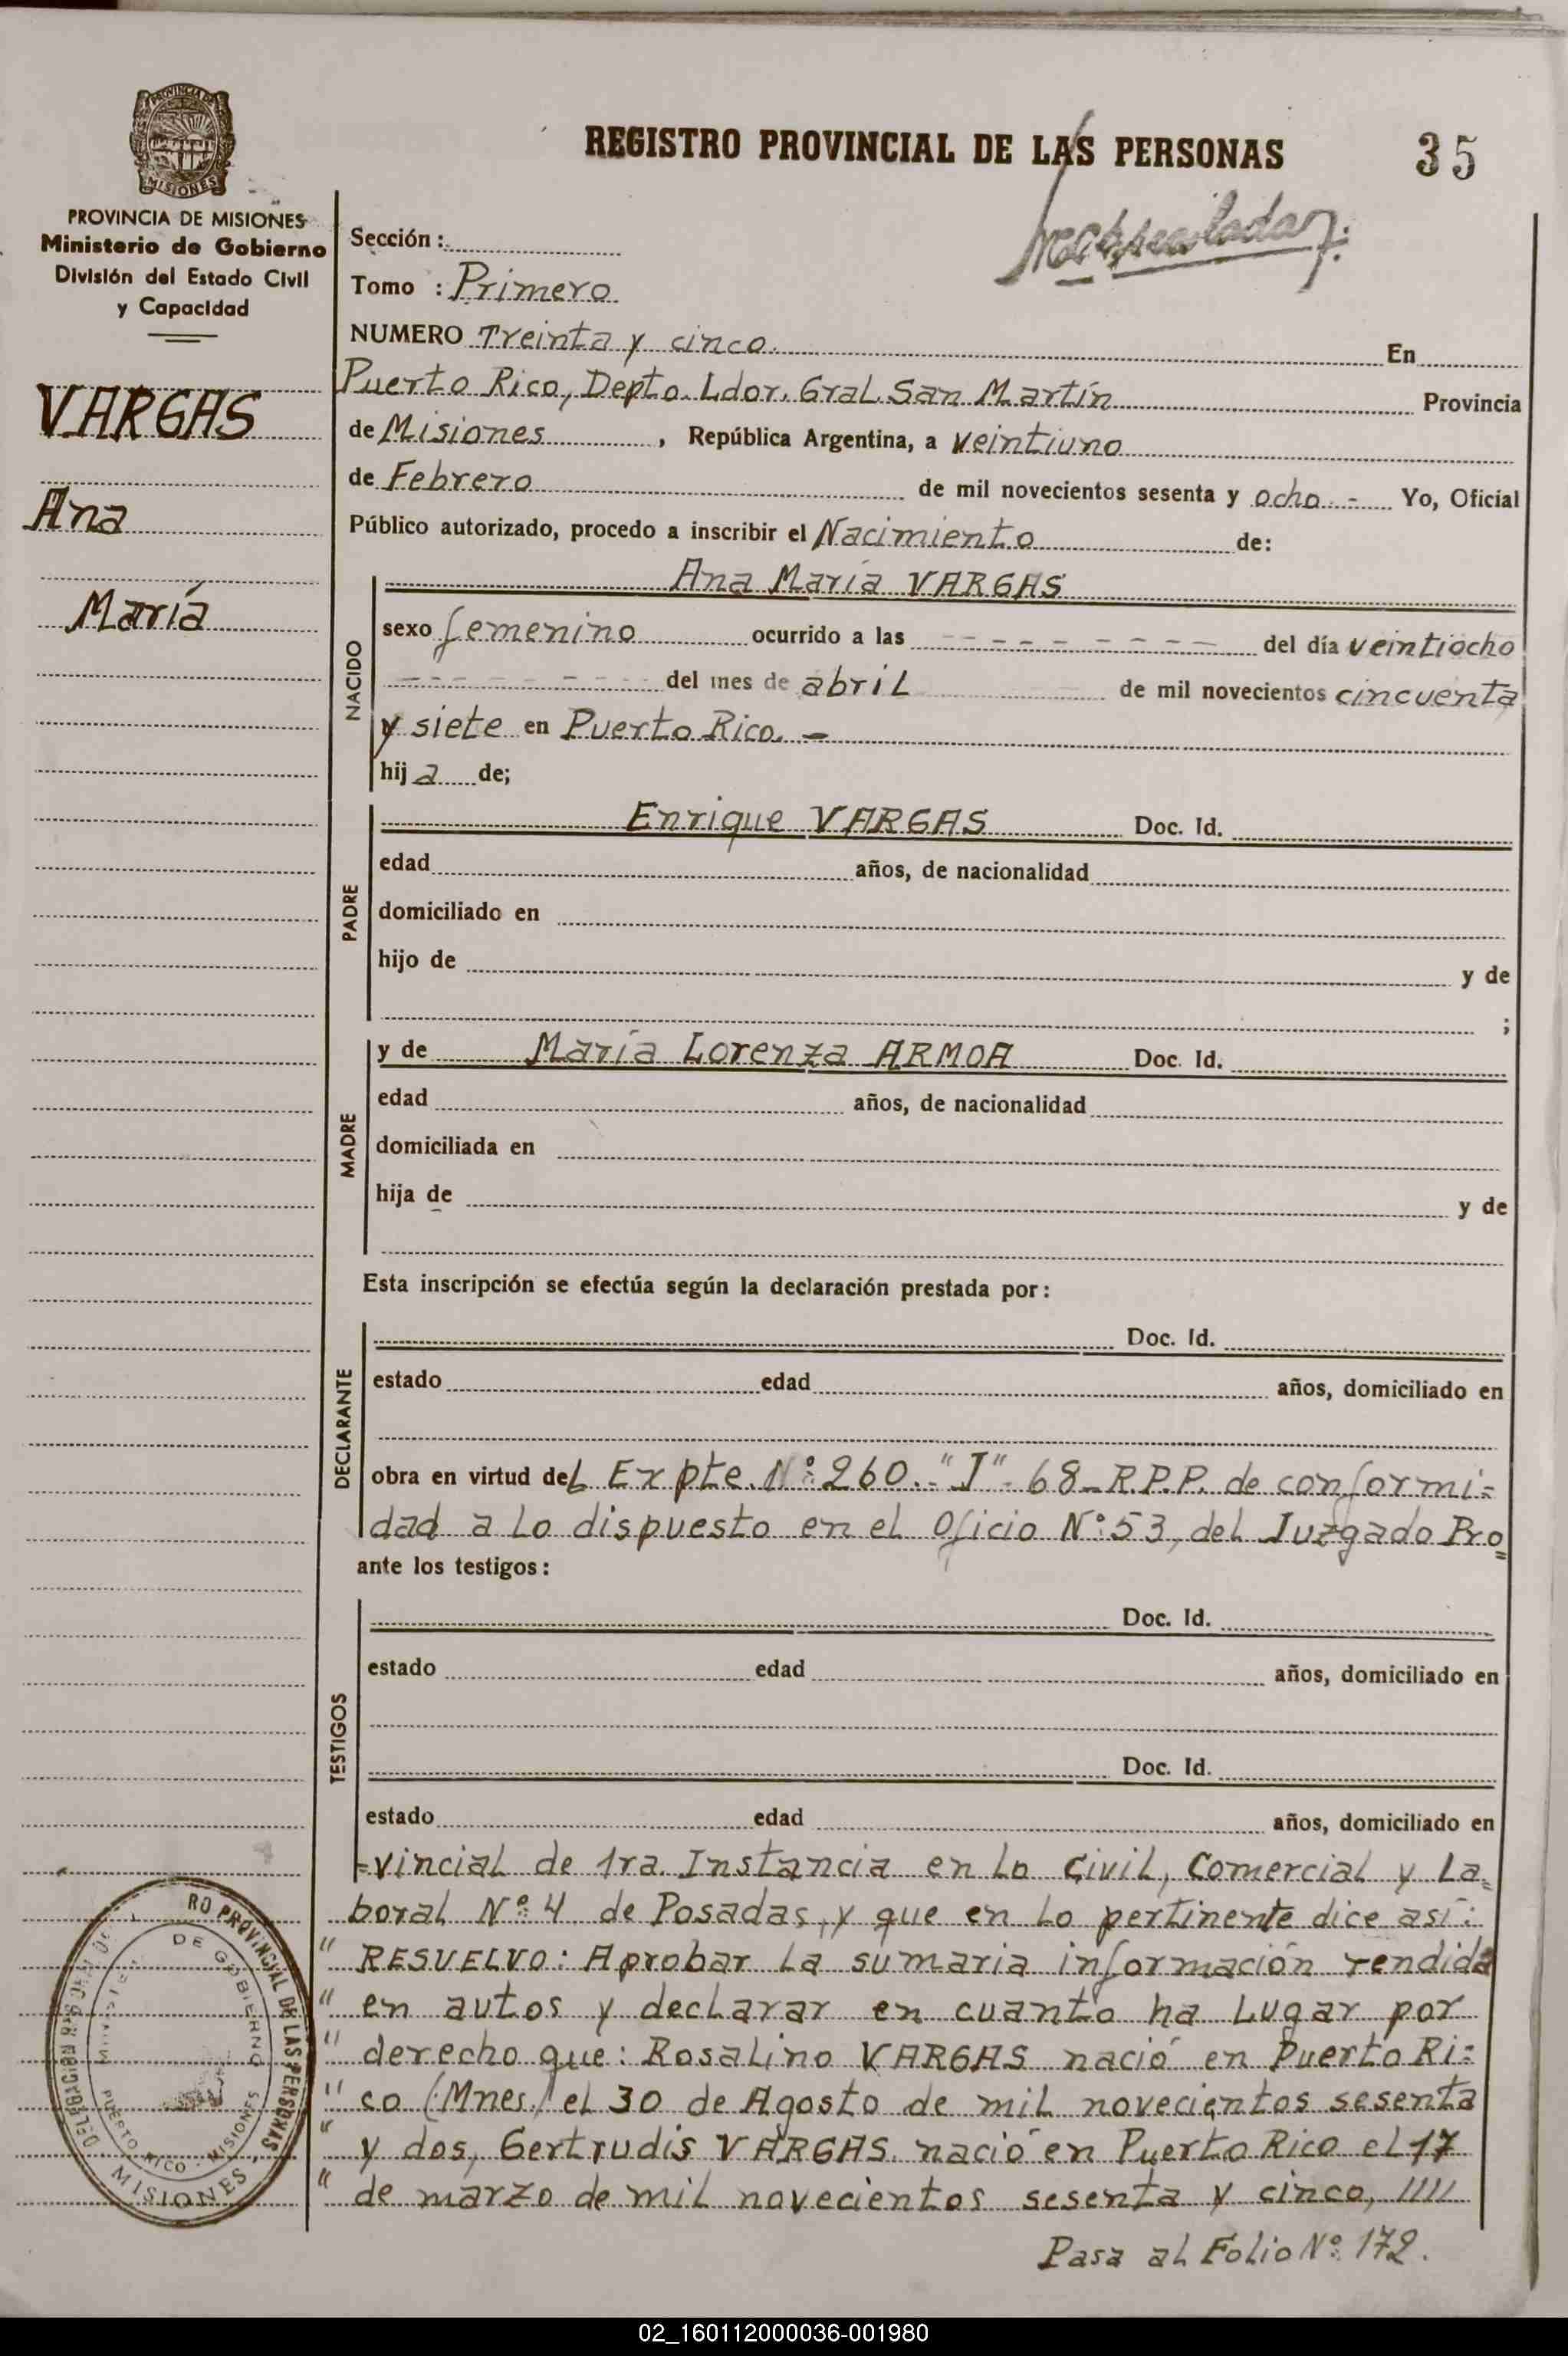 REGISTRO PROVINCIAL DE LAS PERSONAS
35
PROVINCIA DE MISIONES
Ministerio de Gobierno
División del Estado Civil
y Capacidad
VARGAS
Ana
María
Sección :
Tomo : Primero
NUMERO Treinta y cinco. En
Puerto Rico, Depto. Ldor. Gral. San Martín Provincia
de Misiones , República Argentina, a veintiuno
de Febrero de mil novecientos sesenta y ocho - Yo, Oficial
Público autorizado, procedo a inscribir el Nacimiento de:
NACIDO
Ana María VARGAS
sexo femenino ocurrido a las - - - - - - - - - del día veintiocho
- - - - - - - - - del mes de abril de mil novecientos cincuenta
y siete en Puerto Rico. -
hij a de;
PADRE
Enrique VARGAS Doc. Id.
edad años, de nacionalidad
domiciliado en
hijo de y de
;
MADRE
y de María Lorenza ARMOA Doc. Id.
edad años, de nacionalidad
domiciliada en
hija de y de
Esta inscripción se efectúa según la declaración prestada por :
DECLARANTE
Doc. Id.
estado edad años, domiciliado en
obra en virtud del Expte. Nº 260. "J" - 68 - R.P.P. de conformi=
dad a lo dispuesto en el Oficio Nº 53, del Juzgado Pro=
ante los testigos :
TESTIGOS
Doc. Id.
estado edad años, domiciliado en
Doc. Id.
estado edad años, domiciliado en
=vincial de 1ra. Instancia en lo Civil, Comercial y La=
boral Nº 4 de Posadas, y que en lo pertinente dice así:
" RESUELVO: Aprobar la sumaria información rendida
" en autos y declarar en cuanto ha lugar por
" derecho que: Rosalino VARGAS nació en Puerto Ri=
" co (Mnes.) el 30 de Agosto de mil novecientos sesenta
" y dos, Gertrudis VARGAS nació en Puerto Rico el 17
" de marzo de mil novecientos sesenta y cinco, ////
Pasa al Folio Nº 172.
RO PROVINCIAL DE LAS PERSONAS
DE GOBIERNO
PUERTO RICO - MISIONES
MISIONES
02_160112000036-001980